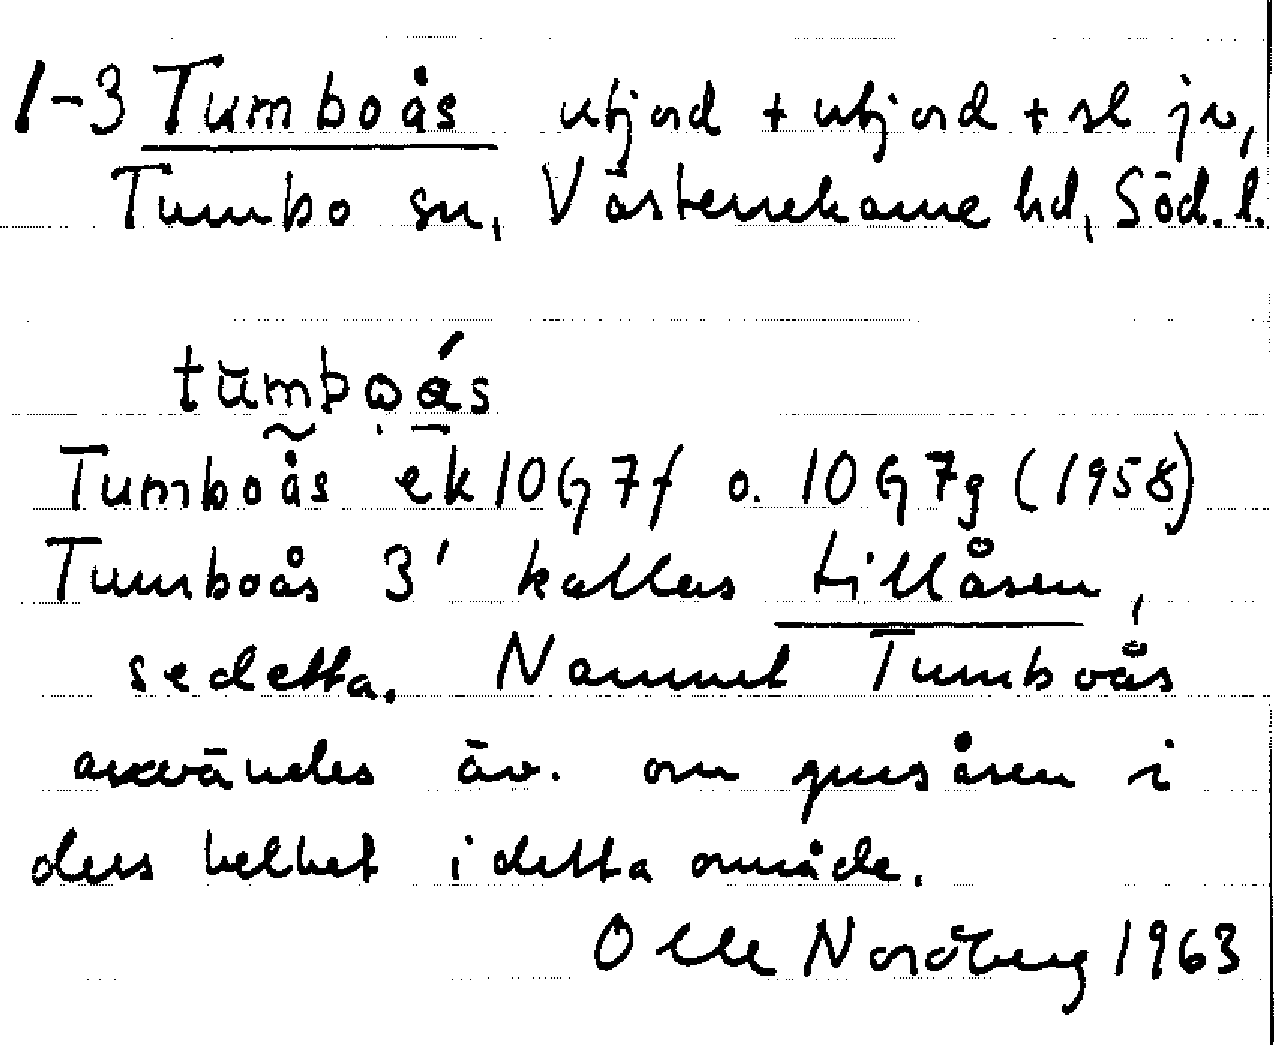 1-3 Tumboås utjord + utjord + sl jv,
Tumbo sn, Västerrekarne hd, Söd. l.
tŭmboás
Tumboås ek 10G 7f o. 10G 7g (1958)
Tumboås 3' kallas Lillåsen,
se detta. Namnet Tumboås
användes äv. om grusåsen i
dess helhet i detta område.
Olle Nordberg 1963